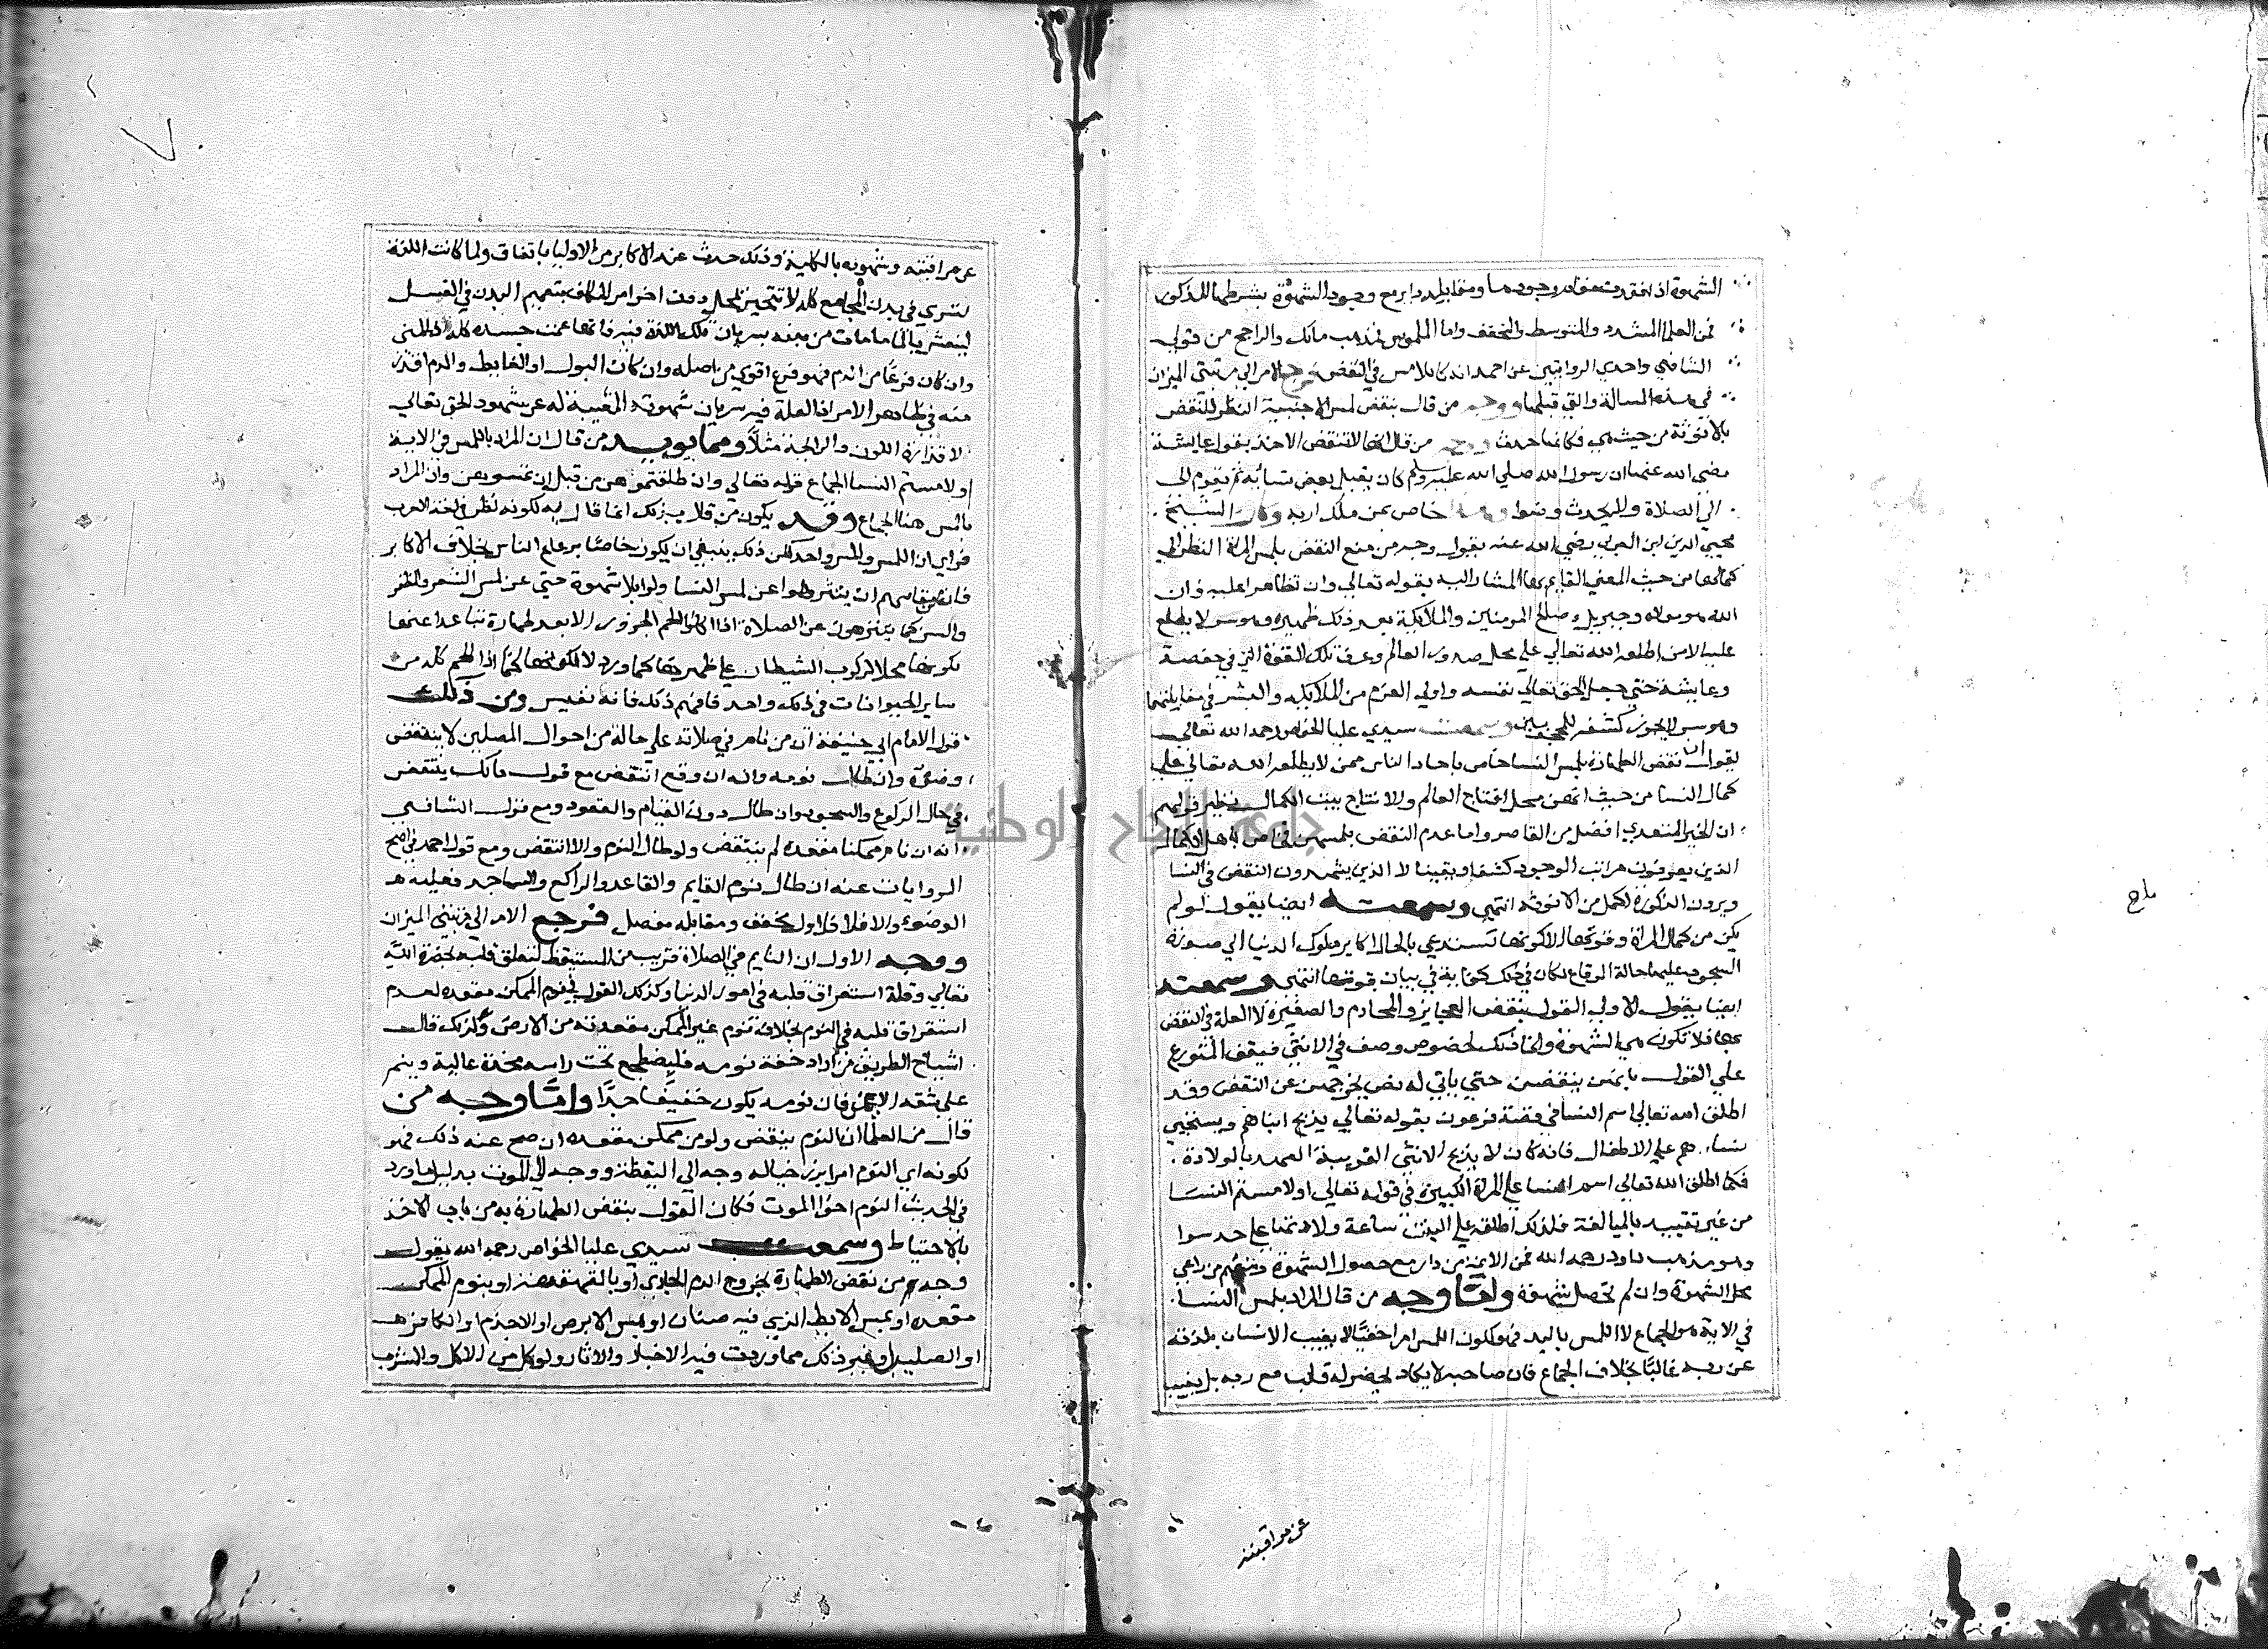 الشهوة اذا فقدت مفقود وجودها ومقابله داير مع وجود الشهوة بشرطها المذكور
فمن العلما المشدد والمتوسط والمخفف واما الملموس فمذهب مالك والراجح من قولي
الشافعي واحدي الروايتين عن احمد انه كاللامس في النقض فرجع الامر الي مرتبتي الميزان
في هذه المسالة والتي قبلها ووجه من قال بنقض لمس الاجنبية النظر للنقض
بالانوثة من حيث هي فكانها حدث ووجه من قال انها لا تنقض الاخذ بقول عايشة
رضي الله عنها ان رسول الله صلي الله عليه وسلم كان يقبل بعض نسائه ثم يقوم الي
الي الصلاة ولا يحدث وضوا وهذا خاص بمن ملك اربه وكان الشيخ
محيي الدين ابن العربي رضي الله عنه يقول وجه من منع النقض بلمس المراة النظر الي
كمالها من حيث المعني القايم بها المشار اليه بقوله تعالي وان تظاهرا عليه فان
الله هو مولاه وجبريل وصالح المومنين والملايكة بعد ذلك ظهير وهو سر لا يطلع
عليه الا من اطلعه الله تعالي علي محل صدور العالم وعرف تلك القوة التي في حفصة
وعايشة حتي جعل الحق تعالي نفسه واولي العزم من الملايكة والبشر في مقابلتهما
وهو سر لا يجوز كشفه للمحجوبين وسمعت سيدي عليا الخواص رحمه الله تعالي
يقول ان نقض الطهارة بلمس النسا خاص باحاد الناس ممن لا يطلعه الله تعالي علي
كمال النسا من حيث انهن محل افتتاح العالم وللانتاج بيت الكمال نظير قولهم
ان الخير المتعدي افضل من القاصر واما عدم النقض بلمسهن فخاص باهل الكمال
الذين يعرفون مراتب الوجود كشفا ويقينا لا الذين يشهدون النقص في النسا
ويرون الذكورة اكمل من الانوثة انتهي وسمعته ايضا يقول لو لم
يكن من كمال المراة وقوتها الا كونها تستدعي بالحال اكابر ملوك الدنيا الي صورة
السجود عليها حالة الوقاع لكان في ذلك كفاية في بيان قوتها انتهي وسمعته
ايضا يقول الاولي القول بنقض العجايز والمحارم والصغيرة لا العلة في النقض
بها فلا تكون هي الشهوة وانما ذلك لخصوص وصف في الانثي فيقف المتورع
علي القول بانهن ينقضن حتي ياتي له نص يخرجهن عن النقض وقد
اطلق الله تعالي اسم النسا في قصة فرعون بقوله تعالي يذبح ابناهم ويستحيي
نساءهم علي الاطفال فانه كان لا يذبح الانثي القريبة العهد بالولادة
فكما اطلق الله تعالي اسم النسا علي المراة الكبيرة في قوله تعالي او لامستم النسا
من غير تقييد بالمبالغة فلذلك اطلقه علي البنت ساعة ولادتها علي حد سوا
وهو مذهب داود رحمه الله فمن الايمة من دار مع حصول الشهوة ومنهم من راعي
محل الشهوة وان لم تحصل شهوة واما وجه من قال المراد بلمس النسا
في الاية هو الجماع لا اللمس باليد فهو لكون اللمس امرا خفيا لا يغيب الانسان بلذته
عن ربه غالبا بخلاف الجماع فان صاحبه لا يكاد يحضر له قلب مع ربه بل يغيب
عن مراقبته
عن مراقبته وشهوده بالكلية وذلك حدث عند الاكابر من الاوليا باتفاق ولما كانت اللذة
تسري في بدن المجامع كله لا تتحيز لمحل دون اخر امر المكلف بتعميم البدن في الغسل
لينعش بالما ما مات من بدنه بسريان تلك اللذة فيه فانها عمت جسده كله اذ المني
وان كان فرعا من الدم فهو فرع اقوي من اصله وان كان البول او الغايط والدم اقذر
منه في ظاهر الامر اذ العلة فيه سريان شهوته المغيبة له عن شهود الحق تعالي
لا قذارة اللون والرايحة مثلا ومما يويد من قال ان المراد باللمس في الاية
او لامستم النسا الجماع قوله تعالي وان طلقتموهن من قبل ان تمسوهن وان المراد
بالمس هنا الجماع وقد يكون من قال بذلك انما قال به لكونه نظر في لغة العرب
فراي ان اللمس والمس واحد لكن ذلك ينبغي ان يكون خاصا بعلم الناس بخلاف الاكابر
فان من مقامهم ان يتنزهوا عن لمس النسا ولو بلا شهوة حتي عن لمس الشعر والظفر
والسن كما يتنزهون عن الصلاة اذا اكلوا لحم الجزور الا بعد طهارة تباعدا عنها
بكونها محلا لركوب الشيطان علي ظهرها كما ورد لا لكونها لحما اذ اللحم كله من
ساير الحيوانات في ذلك واحد فافهم ذلك فانه نفيس ومن ذلك
قول الامام ابي حنيفة ان من نام في صلاته علي حالة من احوال المصلين لا ينتقض
وضوه وان طال نومه وانه ان وقع انتقض مع قول مالك ينتقض
في حال الركوع والسجود ان طال دون القيام والقعود ومع قول الشافعي
انه ان نام ممكنا مقعده لم ينتقض ولو طال النوم والا انتقض ومع قول احمد في اصح
الروايات عنه ان طال نوم القايم والقاعد والراكع والساجد فعليه
الوضوء والا فلا فالاول مخفف ومقابله مفصل فرجع الامر الي مرتبتي الميزان
ووجه الاول ان النايم في الصلاة قريب من المستيقظ لتعلق قلبه بحضرة الله
تعالي وقلة استغراق قلبه في امور الدنيا وكذلك القول في نوم الممكن مقعده لعدم
استغراق قلبه في النوم بخلاف نوم غير الممكن مقعدته من الارض ولذلك قال
اشياخ الطريق من اراد خفة نومه فليضطجع تحت راسه مخدة عالية وينم
علي شقه الايمن فان نومه يكون خفيفا جدا واما وجه من
قال من العلما ان النوم ينقض ولو من ممكن مقعده ان صح عنه ذلك فهو
لكونه اي النوم امرا برزخيا له وجه الي اليقظة ووجه الي الموت بدليل ما ورد
في الحديث النوم اخو الموت فكان القول بنقض الطهارة به من باب الاخذ
بالاحتياط وسمعت سيدي عليا الخواص رحمه الله يقول
وجه من نقض الطهارة بخروج الدم الجاري او بالقهقهة او بنوم الممكن
مقعده او بمس الابط الذي فيه صنان او بمس الابرص او الاجذم او الكافر
او الصليب او غير ذلك مما وردت فيه الاخبار والاثار ولو كل من الاكل والشرب